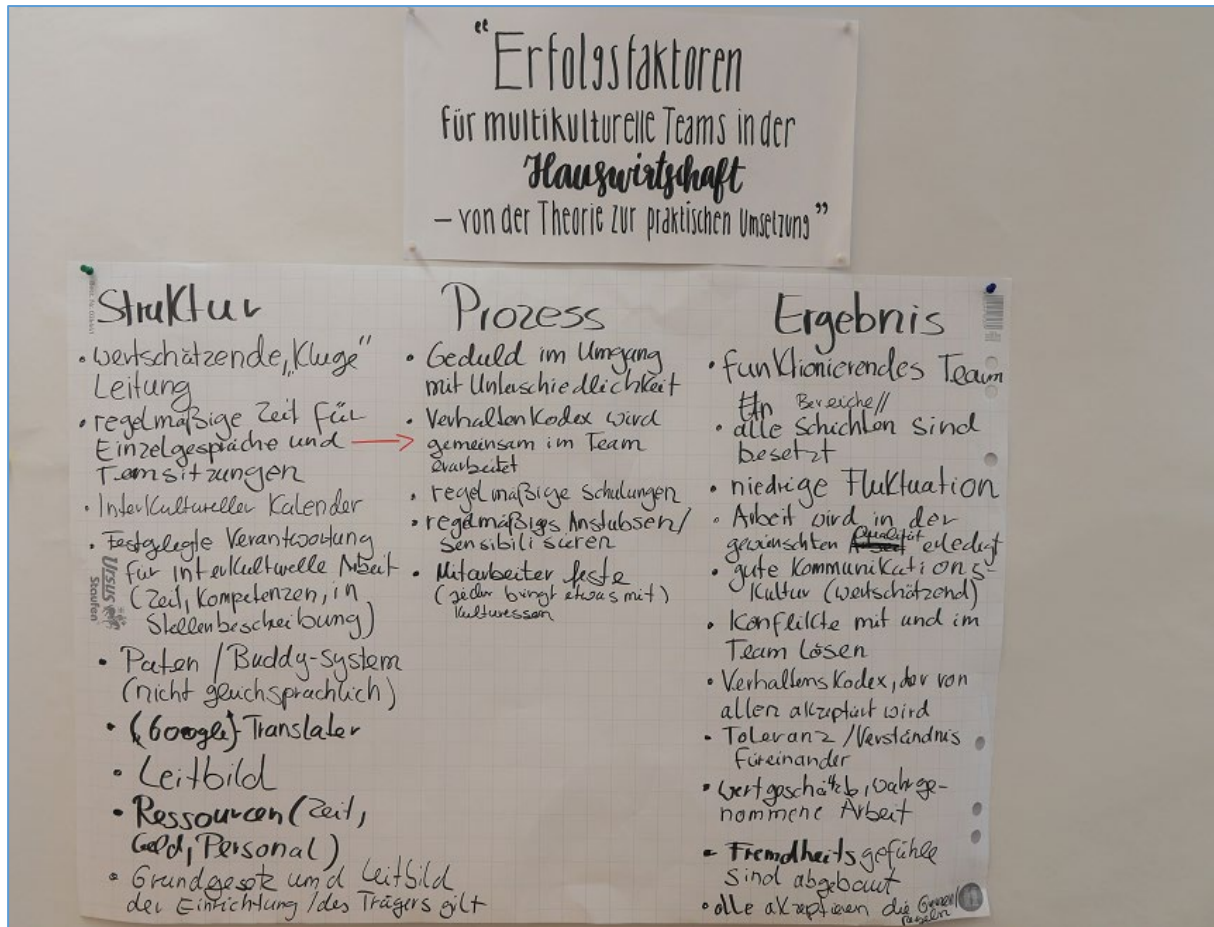 "Erfolgsfaktoren
für multikulturelle Teams in der
Hauswirtschaft
– von der Theorie zur praktischen Umsetzung"
Struktur
• wertschätzende, "Kluge"
Leitung
• regelmäßige Zeit für
Einzelgespräche und
Teamsitzungen
• Interkultureller Kalender
• Festgelegte Verantwortung
für interkulturelle Arbeit
(Zeit, Kompetenzen, in
Stellenbescheibung)
• Paten / Buddy-System
(nicht gleichsprachlich)
• (Google) Translater
• Leitbild
• Ressourcen (Zeit,
Geld, Personal)
• Grundgesetz und Leitbild
der Einrichtung / des Trägers gilt
Ursus
Staufen
Prozess
• Geduld im Umgang
mit Unterschiedlichkeit
• Verhaltenkodex wird
gemeinsam im Team
erarbeitet
• regelmäßige Schulungen
• regelmäßiges Anstubsen /
Sensibilisieren
• Mitarbeiter feste
(jeder bringt etwas mit)
Kulturessen
Ergebnis
• funktionierendes Team
Bereiche //
• alle Schichten sind
besetzt
• niedrige Fluktuation
• Arbeit wird in der
gewünschten Qualität erledigt
• gute Kommunikations-
Kultur (wertschätzend)
• Konflikte mit und im
Team lösen
• Verhaltenskodex, der von
allen akzeptiert wird
• Toleranz / Verständnis
füreinander
• wertgeschätzte, wahrge-
nommene Arbeit
• Fremdheitsgefühle
sind abgebaut
• alle akzeptieren die
regeln